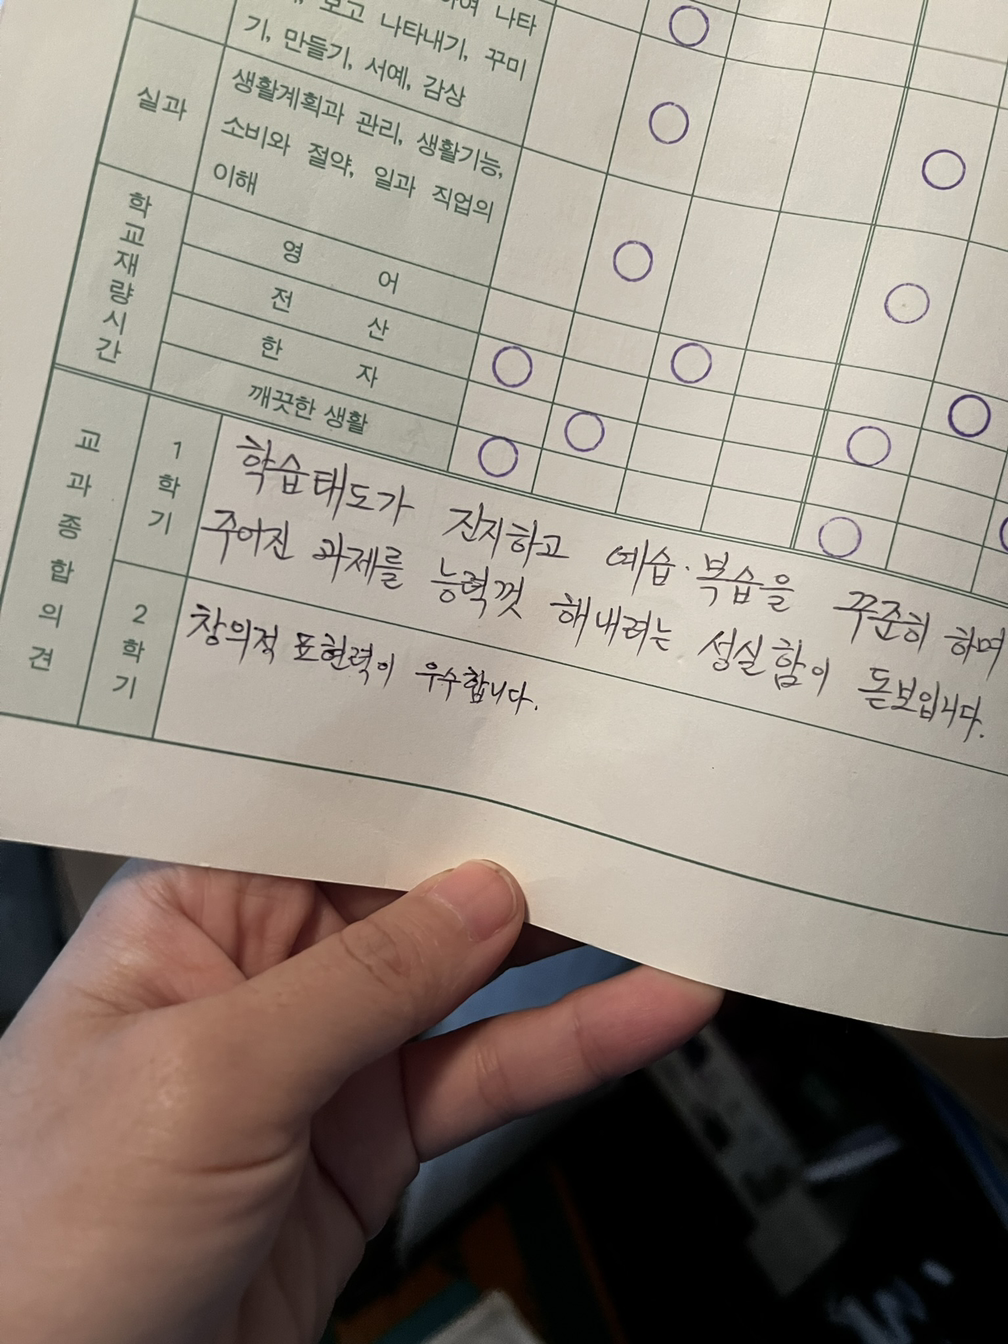 하여 나타
보고 나타내기, 꾸미
기, 만들기, 서예, 감상
실과
생활계획과 관리, 생활기능,
소비와 절약, 일과 직업의
이해
학교재량시간
영어
전산
한자
깨끗한 생활
교과종합의견
1학기
학습태도가 진지하고 예습·복습을 꾸준히 하며
주어진 과제를 능력껏 해내려는 성실함이 돋보입니다.
2학기
창의적 표현력이 우수합니다.